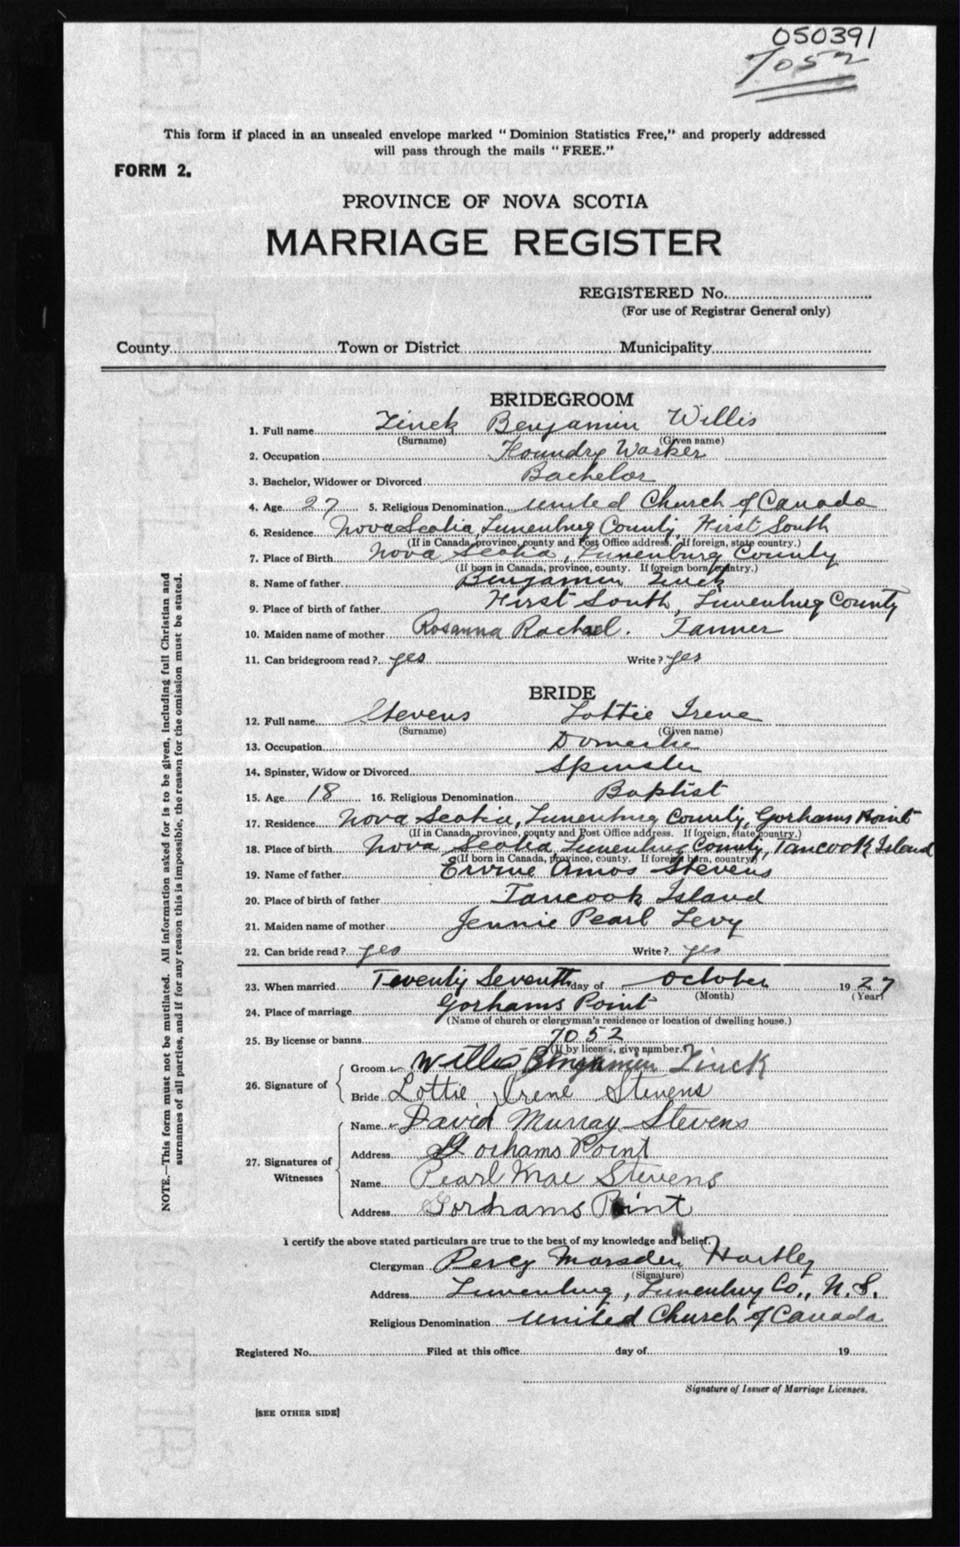 050391
7052
This form if placed in an unsealed envelope marked "Dominion Statistics Free," and properly addressed
will pass through the mails "FREE."
FORM 2.
PROVINCE OF NOVA SCOTIA
MARRIAGE REGISTER
REGISTERED No.
(For use of Registrar General only)
County Town or District Municipality
BRIDEGROOM
1. Full name Zinck Benjamin Willis
(Surname) (Given name)
2. Occupation Foundry Worker
3. Bachelor, Widower or Divorced Bachelor
4. Age 27 5. Religious Denomination United Church of Canada
6. Residence Nova Scotia, Lunenburg County, First South
(If in Canada, province, county and Post Office address. If foreign, state country.)
7. Place of Birth Nova Scotia, Lunenburg County
(If born in Canada, province, county. If foreign born, country.)
8. Name of father Benjamin Zinck
9. Place of birth of father First South, Lunenburg County
10. Maiden name of mother Rosanna Rachael. Tanner
11. Can bridegroom read? yes Write? yes
BRIDE
12. Full name Stevens Lottie Irene
(Surname) (Given name)
13. Occupation Domestic
14. Spinster, Widow or Divorced Spinster
15. Age 18 16. Religious Denomination Baptist
17. Residence Nova Scotia, Lunenburg County, Gorhams Point
(If in Canada, province, county and Post Office address. If foreign, state country.)
18. Place of birth Nova Scotia, Lunenburg County, Tancook Island
(If born in Canada, province, county. If foreign born, country)
19. Name of father Ervine Amos Stevens
20. Place of birth of father Tancook Island
21. Maiden name of mother Jennie Pearl Levy
22. Can bride read? yes Write? yes
23. When married Twenty Seventh day of October 1927
(Month) (Year)
24. Place of marriage Gorhams Point
(Name of church or clergyman's residence or location of dwelling house.)
25. By license or banns 7052
(If by license, give number.)
26. Signature of Groom Willis Benjamin Zinck
Bride Lottie Irene Stevens
27. Signatures of Witnesses Name David Murray Stevens
Address Gorhams Point
Name Pearl Mae Stevens
Address Gorhams Point
I certify the above stated particulars are true to the best of my knowledge and belief.
Clergyman Percy Marsden Hartley
(Signature)
Address Lunenburg, Lunenburg Co., N.S.
Religious Denomination United Church of Canada
Registered No. Filed at this office day of 19
Signature of Issuer of Marriage Licenses.
[SEE OTHER SIDE]
NOTE.—This form must not be mutilated. All information asked for is to be given, including full Christian and
surnames of all parties, and if for any reason this is impossible, the reason for the omission must be stated.